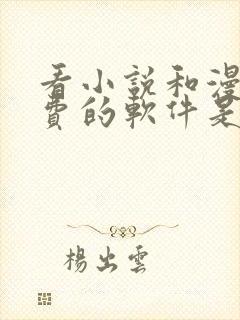 看小說和漫
費的軟件是
楊出雲